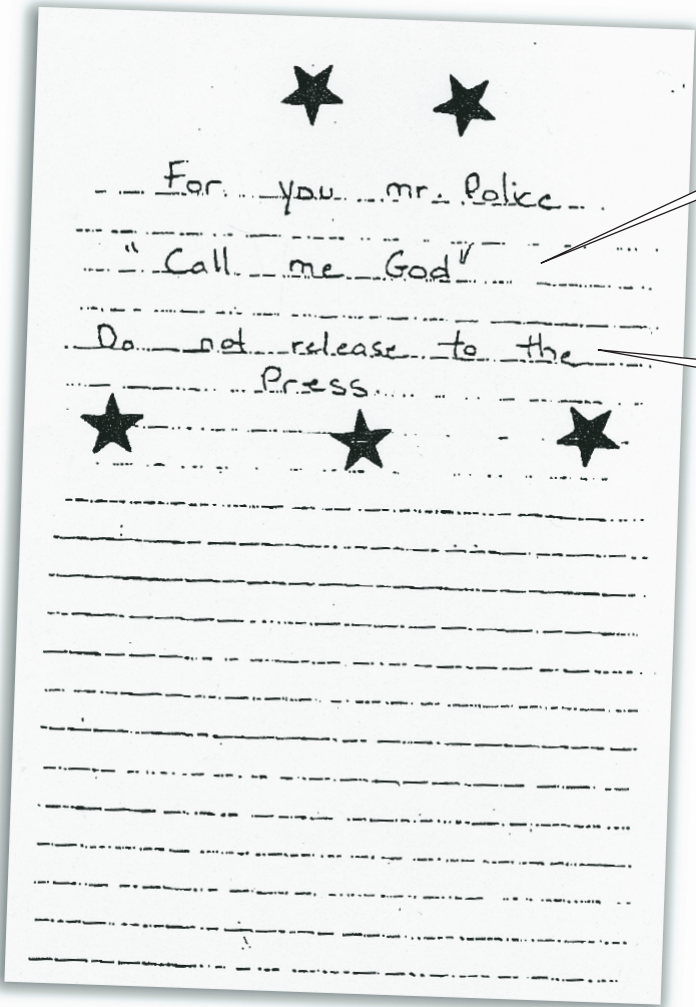 For you mr. Police
"Call me God"
Do not release to the
Press.